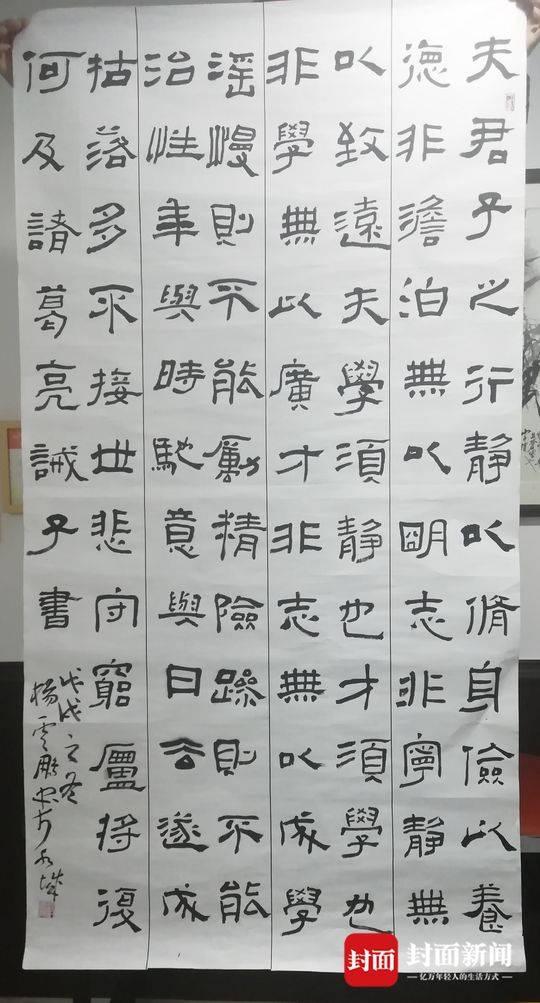 夫君子之行静以脩身儉以養
德非澹泊無以朙志非寧静無
以致遠夫學須静也才須學也
非學無以廣才非志無以成學
滛慢則不能勵精險躁則不能
治性年與時馳意與日去遂成
枯落多不接世悲守窮廬將復
何及諸葛亮誡子書
戊戌之冬
楊雲鵬
封面
封面新闻
亿万年轻人的生活方式